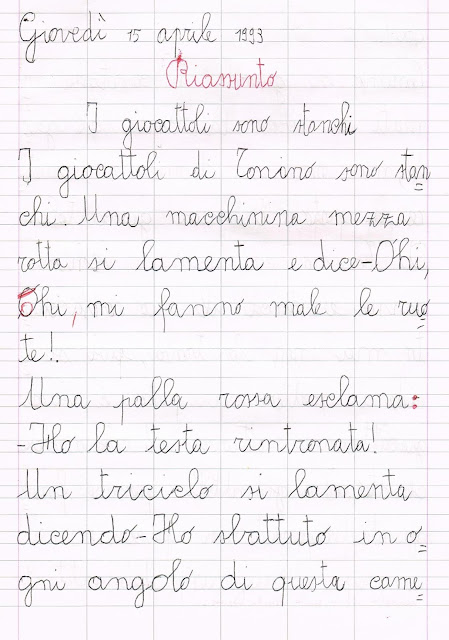 Giovedì 15 aprile 1993
Riassunto
I giocattoli sono stanchi
I giocattoli di Tonino sono stan=
chi. Una macchinina mezza
rotta si lamenta e dice-Ohi,
Ohi, mi fanno male le ruo=
te!.
Una palla rossa esclama:
-Ho la testa rintronata!
Un triciclo si lamenta
dicendo-Ho sbattuto in o=
gni angolo di questa came=